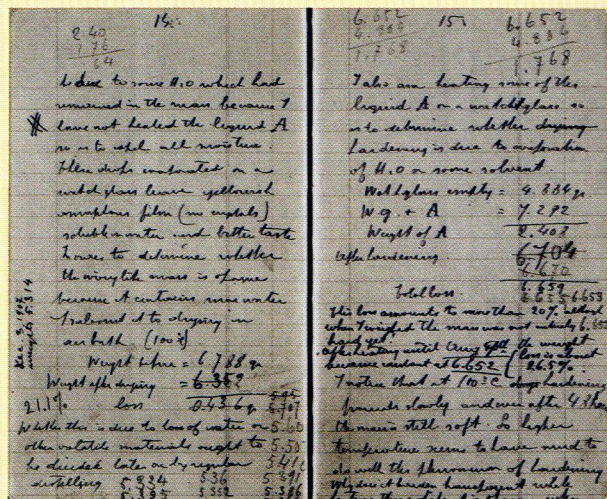 14.
2 40
1 76
64
is due to some H2O which had
remained in the mass because I
have not heated the liquid A
so as to expel all moisture.
Few drops evaporated on a
watch glass leave yellowish
amorphous film (no crystals)
soluble in water and bitter taste
is opaque
because it contains some water
I submit it to drying in
air bath (100°)
Weight before = 6 788 gr
Weight after drying = 6 352
21.1% loss 0.436 gr
Whether this is due to loss of water or
other volatile materials ought to
be decided later on by regular
distilling
Dec. 3, 1907
weighs 5.314
5.60
5.50
5 334 5 36 5 391
5 352 5 386
15.
6.652
4.884
1.768
6.652
4.884
1.768
I also am heating some of this
liquid A on a watchglass so
as to determine whether drying
hardening is due to evaporation
of H2O or some solvent.
Watchglass empty = 4.884 gr.
W.g. + A = 7.292
Weight of A 2.408
After hardening. 6.704
6.670
6.659
Total loss 6.655 6.653
This loss amounts to more than 20% although
when I weighed the mass was not entirely
hard yet.
After heating until the weight
became constant at 6.652 loss is about
26.5%
I notice that at 100°C hardening
proceeds slowly and even after 4 3 hours
the mass is still soft. So higher
temperature seems to have need to
do well the phenomenon of hardening
Why does it harden transparent while